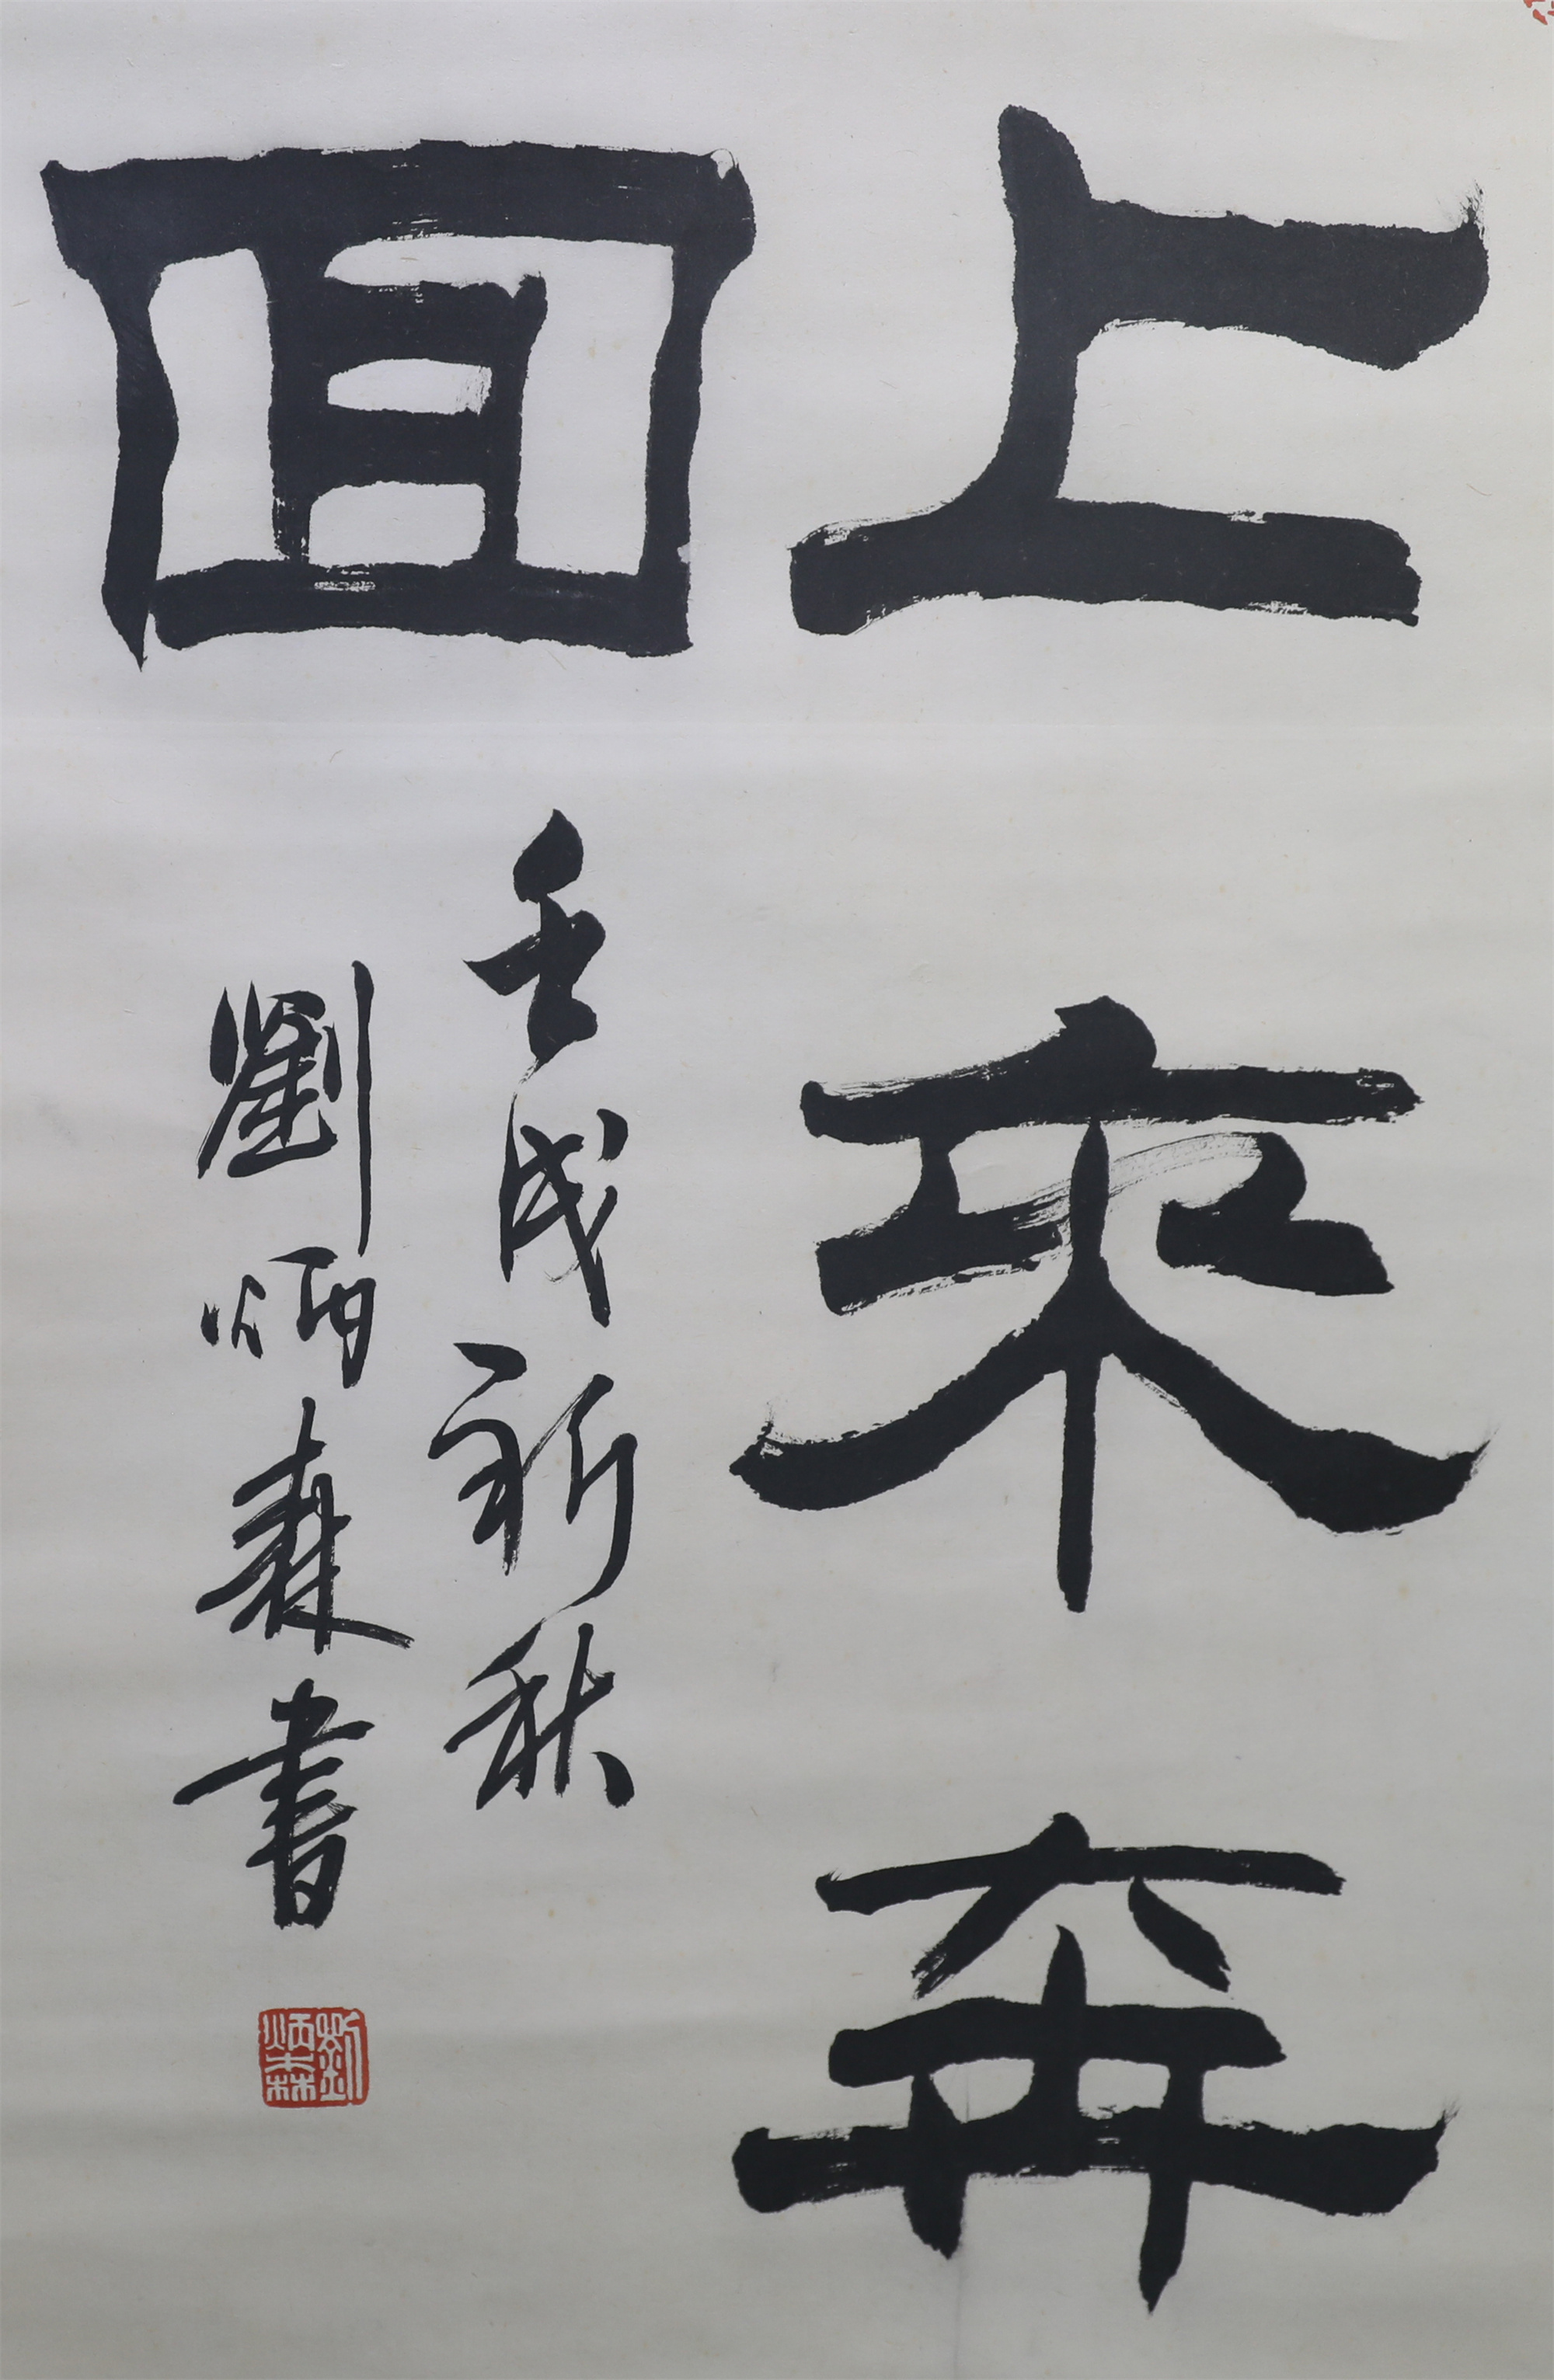 上来奔
回
壬戌新秋
劉炳森書
劉炳森